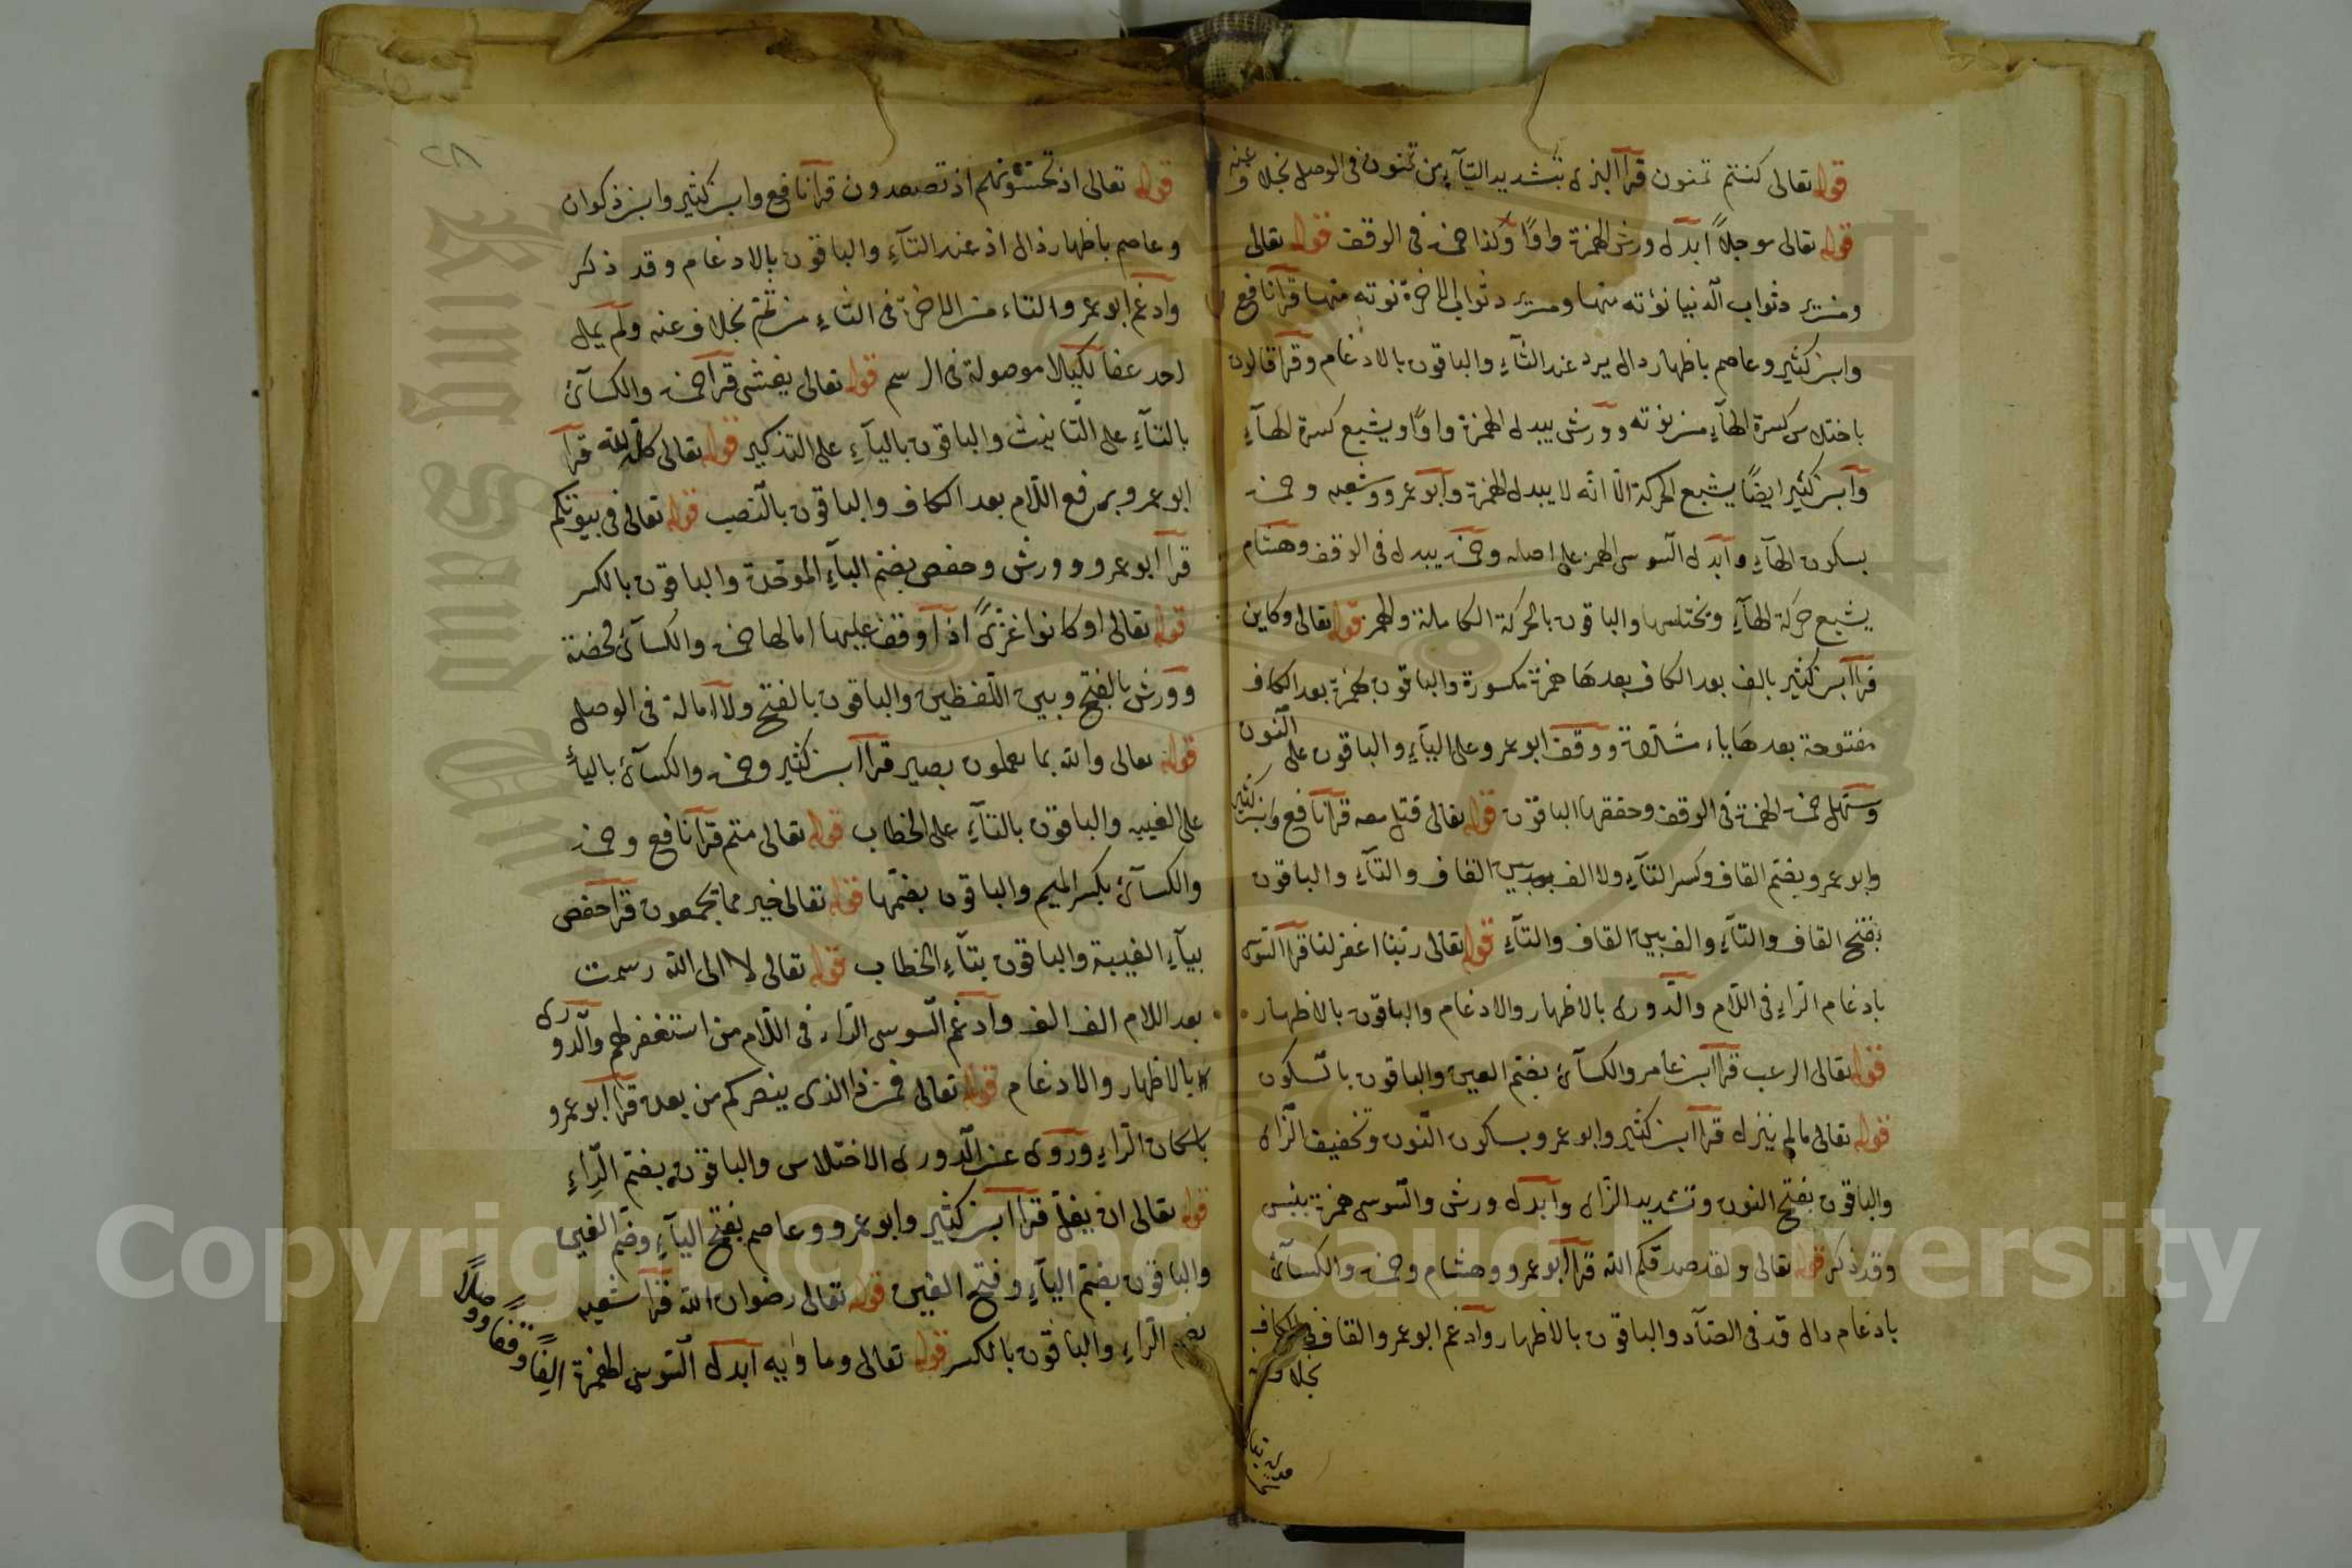 قوله تعالى كنتم تمنون قرأ البزى بتشديد التآء من تمنون فى الوصل بخلاف عنه
قوله تعالى موجلاً ابدل ورش الهمزة واوًا وكذا حمزة فى الوقف قوله تعالى
ومن يرد ثواب الدنيا نؤته منها ومن يرد ثواب الاخرة نوته منها قرأ نافع
وابن كثير وعاصم باظهار دال يرد عند الثآء والباقون بالادغام وقرأ قالون
باختلاس كسرة الهآء من نوته وورش يبدل الهمزة واوًا ويشبع كسرة الهآء
وابن كثير ايضًا يشبع الحركة الّا انّه لا يبدل الهمزة وابو عمرو وشعبه وحمزة
بسكون الهآء وابدل السوسى الهمز على اصله وحمزة يبدل فى الوقف وهشام
يشبع حركة الهآء ويختلسها والباقون بالحركة الكاملة والهمز قوله تعالى وكاين
قرأ ابن كثير بالف بعد الكاف بعدها همزة مكسورة والباقون بهمزة بعد الكاف
مفتوحة بعدها ياء مشدّدة ووقف ابو عمرو على اليآء والباقون على النّون
وسهّل حمزة الهمزة فى الوقف وحققها الباقون قوله تعالى قتل معه قرأ نافع وابن كثير
وابو عمرو بضم القاف وكسر التآء ولا الف بين القاف والتآء والباقون
بفتح القاف والتآء والف بين القاف والتآء قوله تعالى ربنا اغفر لنا قرأ السّوسى
بادغام الرّاء فى اللّام والدّورى بالاظهار والادغام والباقون بالاظهار
قوله تعالى الرعب قرأ ابن عامر والكسآئ بضم العين والباقون بالسكون
قوله تعالى ما لم ينزل قرأ ابن كثير وابو عمرو بسكون النّون وتخفيف الزّاى
والباقون بفتح النون وتشديد الزّاى وابدل ورش والسّوسى همزة بئس
وقد ذكر قوله تعالى ولقد صدقكم الله قرأ ابو عمرو وهشام وحمزة والكسآئ
بادغام دال قد فى الصّاد والباقون بالاظهار وادغم ابو عمرو القاف فى الكاف
بخلاف
قوله تعالى اذ تحسّونهم اذ تصعدون قرأ نافع وابن كثير وابن ذكوان
وعاصم باظهار ذال اذ عند التآء والباقون بالادغام وقد ذكر
وادغم ابو عمرو التاء من الاخرة فى الثاء من ثم بخلاف عنه ولم يمل
احد عفا لكيلا موصولة فى الرسم قوله تعالى يغشى قرأ حمزة والكسآئ
بالتآء على التّانيث والباقون باليآء على التذكير قوله تعالى كله لله قرأ
ابو عمرو برفع اللّام بعد الكاف والباقون بالنّصب قوله تعالى فى بيوتكم
قرأ ابو عمرو وورش وحفص بضم البآء الموحّدة والباقون بالكسر
قوله تعالى او كانوا غزىً اذا وقف عليها امالها حمزة والكسآئ محضة
وورش بالفتح وبين اللّفظين والباقون بالفتح ولا امالة فى الوصل
قوله تعالى والله بما تعملون بصير قرأ ابن كثير وحمزة والكسآئ باليآء
على الغيبه والباقون بالتآء على الخطاب قوله تعالى متم قرأ نافع وحمزة
والكسآئ بكسر الميم والباقون بضمّها قوله تعالى خير مما يجمعون قرأ حفص
بيآء الغيبة والباقون بتآء الخطاب قوله تعالى لا الى الله رسمت
بعد اللام الف الف وادغم السوسى الرّاء فى اللّام من استغفر لهم والدّورى
بالاظهار والادغام قوله تعالى فمن ذا الذى ينصركم من بعده قرأ ابو عمرو
باسكان الرّاء وروى عن الدّورى الاختلاس والباقون بضم الرّاء
قوله تعالى ان يغلّ قرأ ابن كثير وابو عمرو وعاصم بفتح اليآء وضم الغين
والباقون بضم اليآء وفتح الغين قوله تعالى رضوان الله قرأ شعبه
بضم الرّاء والباقون بالكسر قوله تعالى وماواٰيه ابدل السّوسى الهمزة الفًا وقفًا ووصلًا
٢٨
Copyright © King Saud University
King Saud University